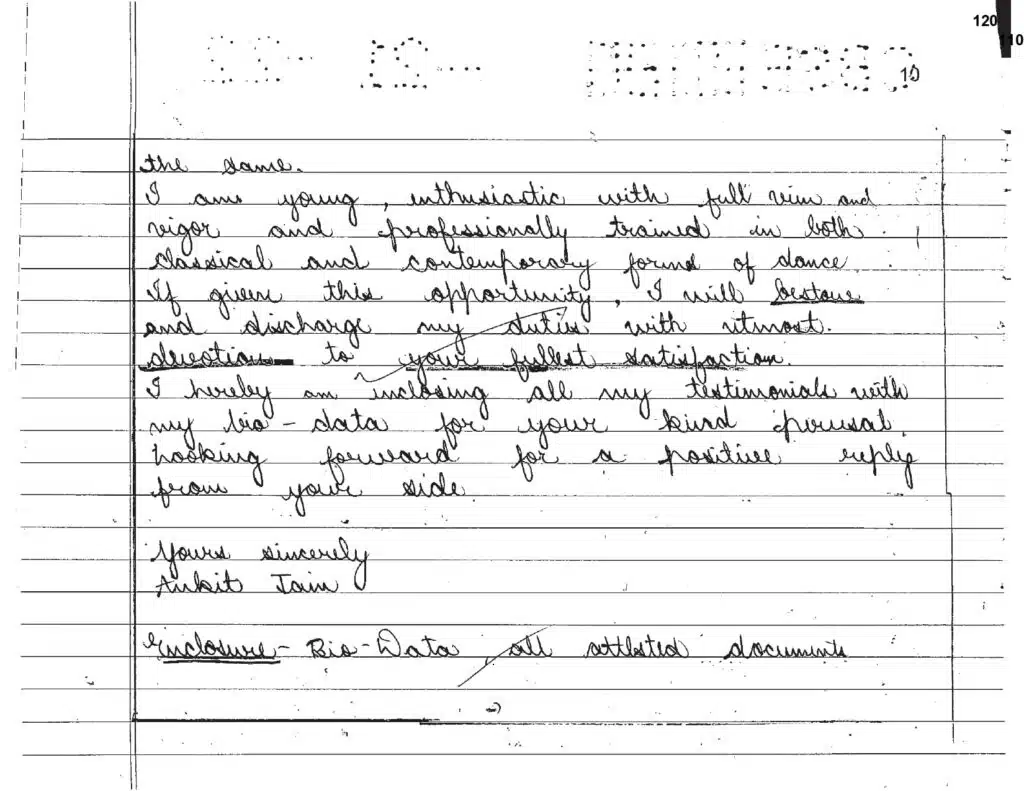 120
110
10
the same.
I am young, enthusiastic with full vim and
vigor and professionally trained in both
classical and contemporary forms of dance.
If given this opportunity, I will bestow
and discharge my duties with utmost.
devotion to your fullest satisfaction.
I hereby am inclosing all my testimonials with
my bio-data for your kind perusal.
Looking forward for a positive reply
from your side.
Yours sincerely
Ankit Jain
Enclosure - Bio-Data, all attested documents